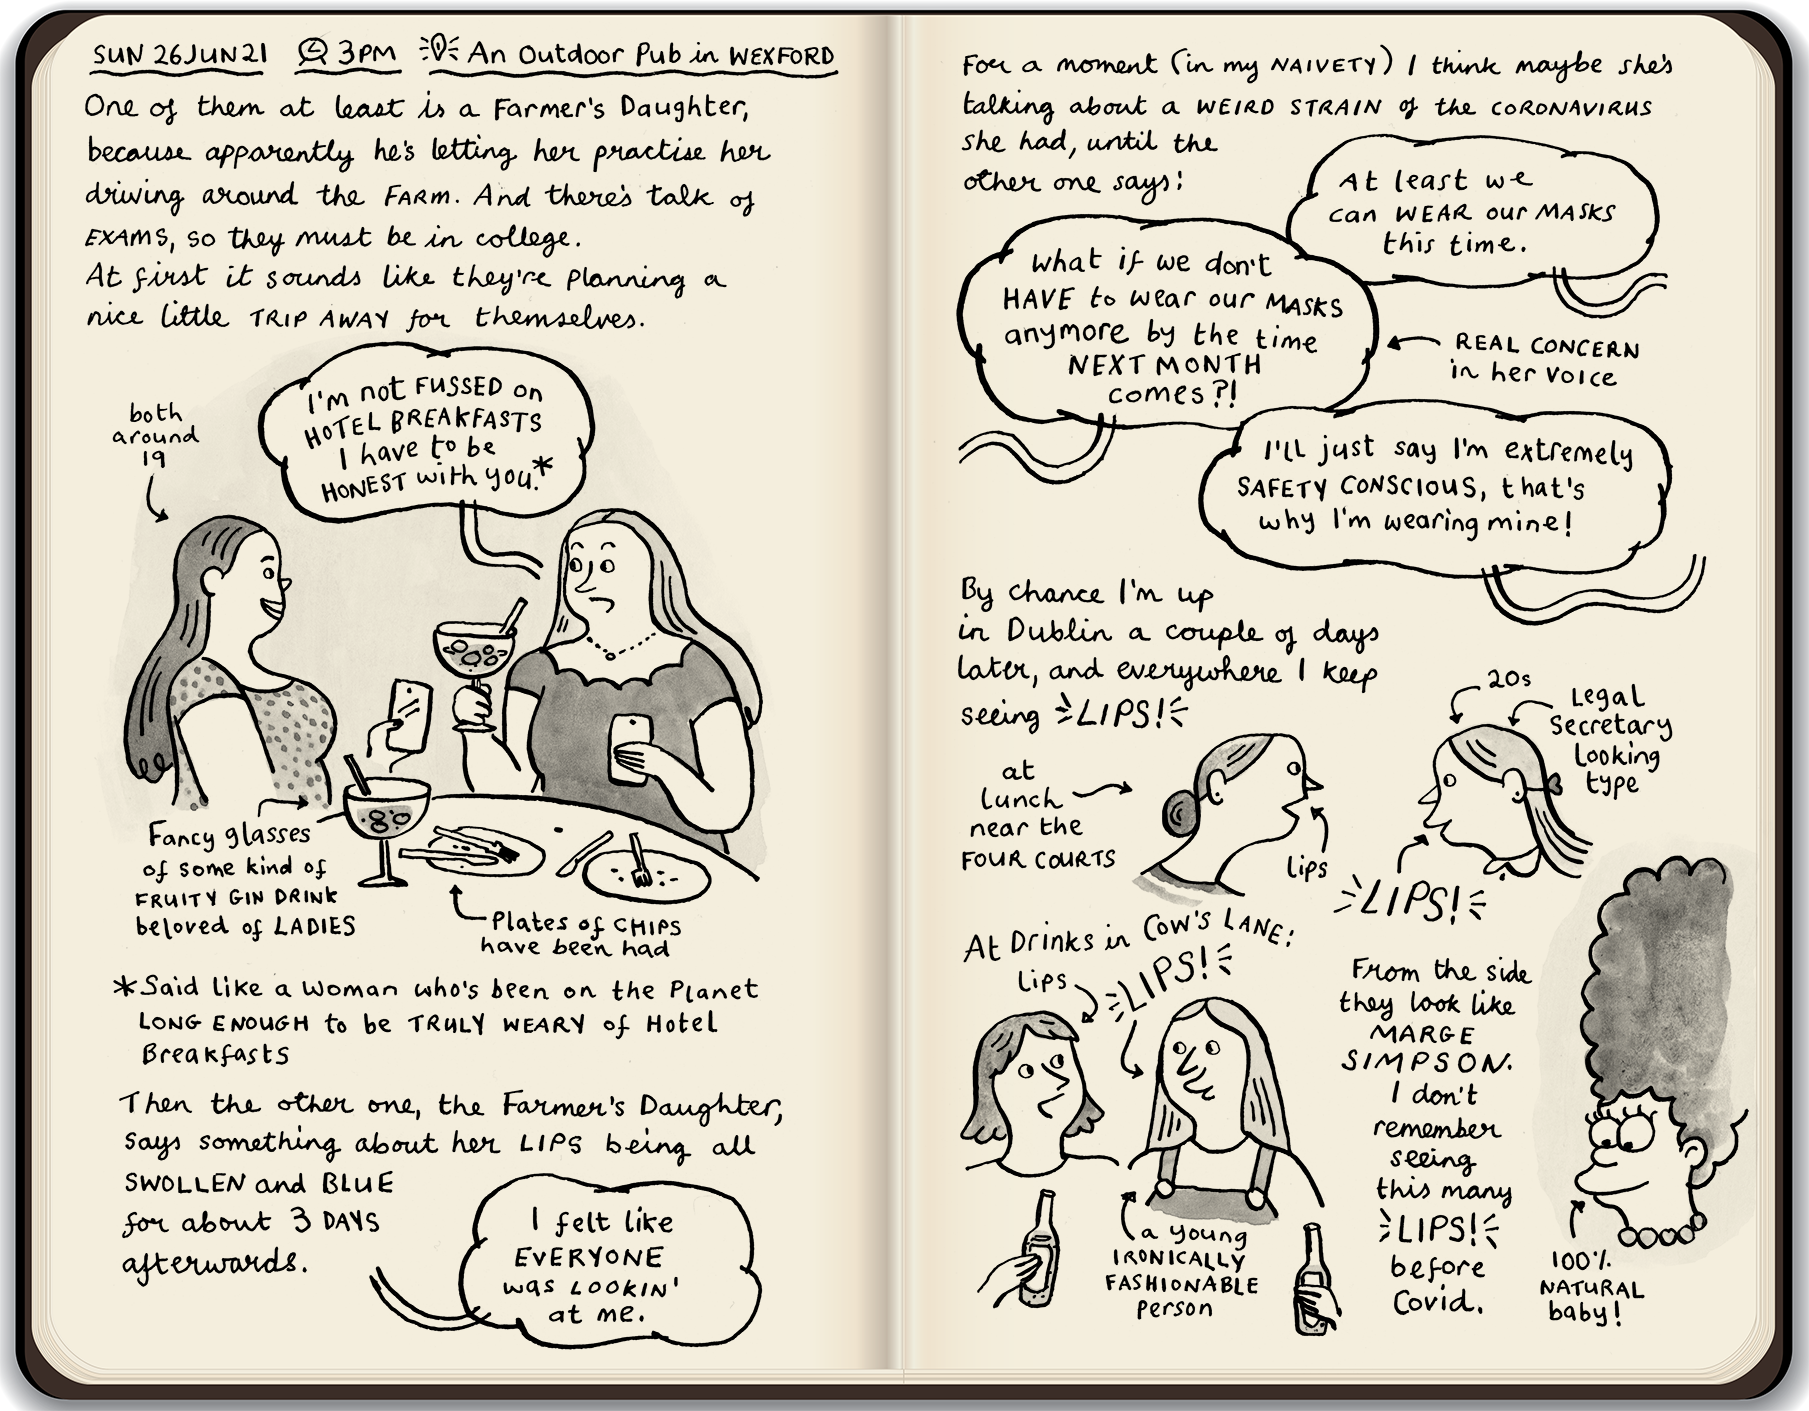 SUN 26 JUN 21 3PM An Outdoor Pub in WEXFORD
One of them at least is a Farmer's Daughter,
because apparently he's letting her practise her
driving around the FARM. And there's talk of
EXAMS, so they must be in college.
At first it sounds like they're planning a
nice little TRIP AWAY for themselves.
I'm not FUSSED on
HOTEL BREAKFASTS
I have to be
HONEST with you.*
both
around
19
Fancy glasses
of some kind of
FRUITY GIN DRINK
beloved of LADIES
Plates of CHIPS
have been had
*Said like a Woman who's been on the Planet
LONG ENOUGH to be TRULY WEARY of Hotel
Breakfasts
Then the other one, the Farmer's Daughter,
says something about her LIPS being all
SWOLLEN and BLUE
for about 3 DAYS
afterwards.
I felt like
EVERYONE
was LOOKIN'
at me.
For a moment (in my NAIVETY) I think maybe she's
talking about a WEIRD STRAIN of the CORONAVIRUS
she had, until the
other one says:
At least we
can WEAR our MASKS
this time.
What if we don't
HAVE to wear our MASKS
anymore by the time
NEXT MONTH
comes?!
REAL CONCERN
in her voice
I'll just say I'm extremely
SAFETY CONSCIOUS, that's
why I'm wearing mine!
By chance I'm up
in Dublin a couple of days
later, and everywhere I keep
seeing LIPS!
at
lunch
near the
FOUR COURTS
lips
20s
Legal
Secretary
Looking
type
LIPS!
At Drinks in Cow's LANE:
lips
LIPS!
a young
IRONICALLY
FASHIONABLE
person
From the side
they look like
MARGE
SIMPSON.
I don't
remember
seeing
this many
LIPS!
before
Covid.
100%
NATURAL
baby!